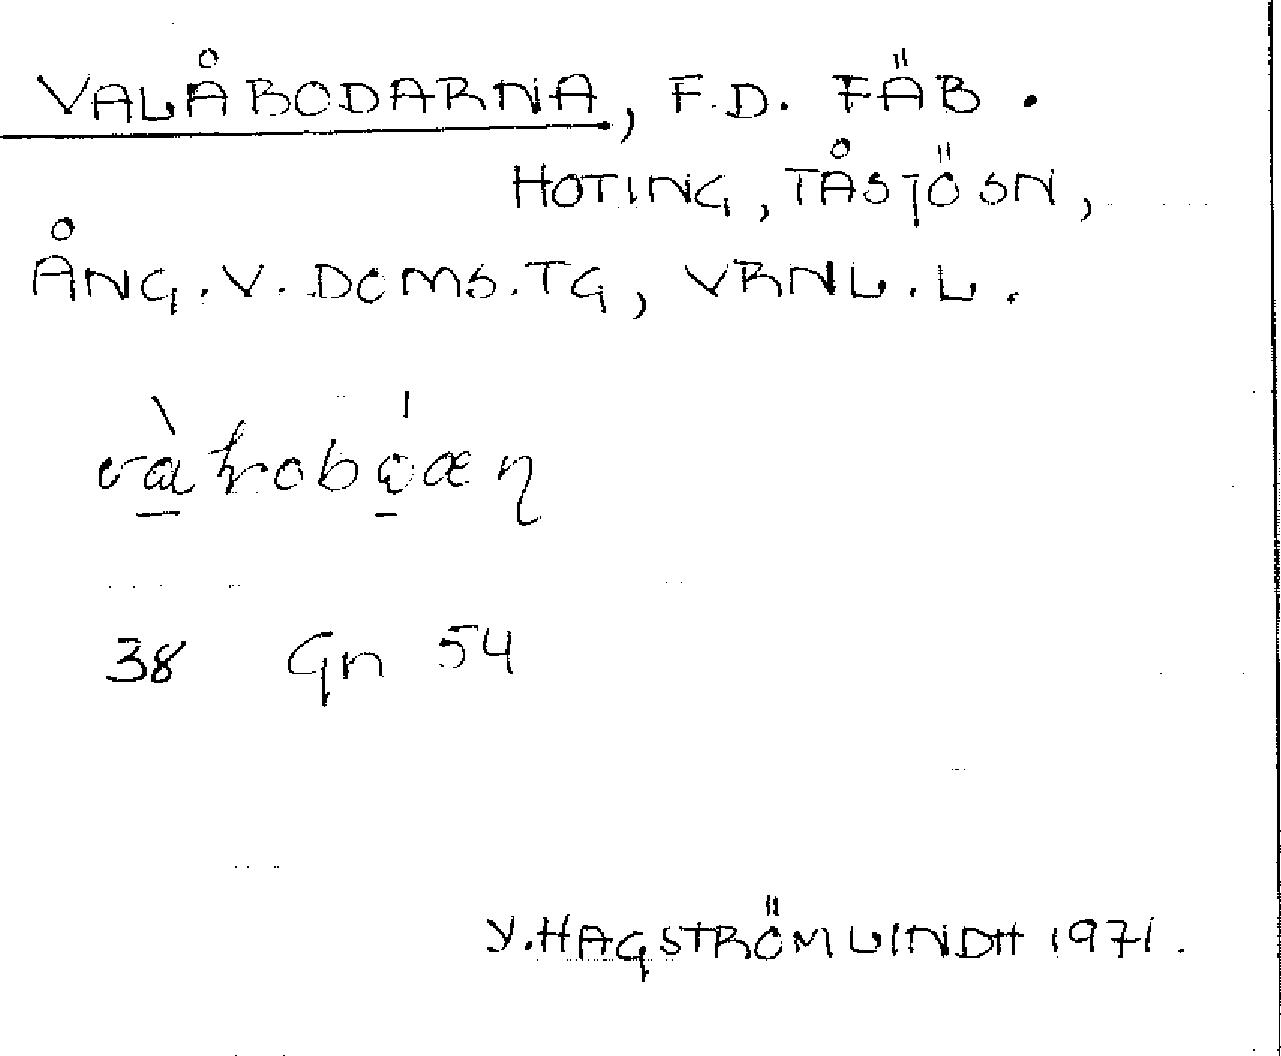 VALÅBODARNA, F.D. FÄB.
HOTING, TÅSJÖ SN,
ÅNG. V. DOMS. TG, VRNL. L.
38 Gn 54
Y. HAGSTRÖM LINDH 1971.